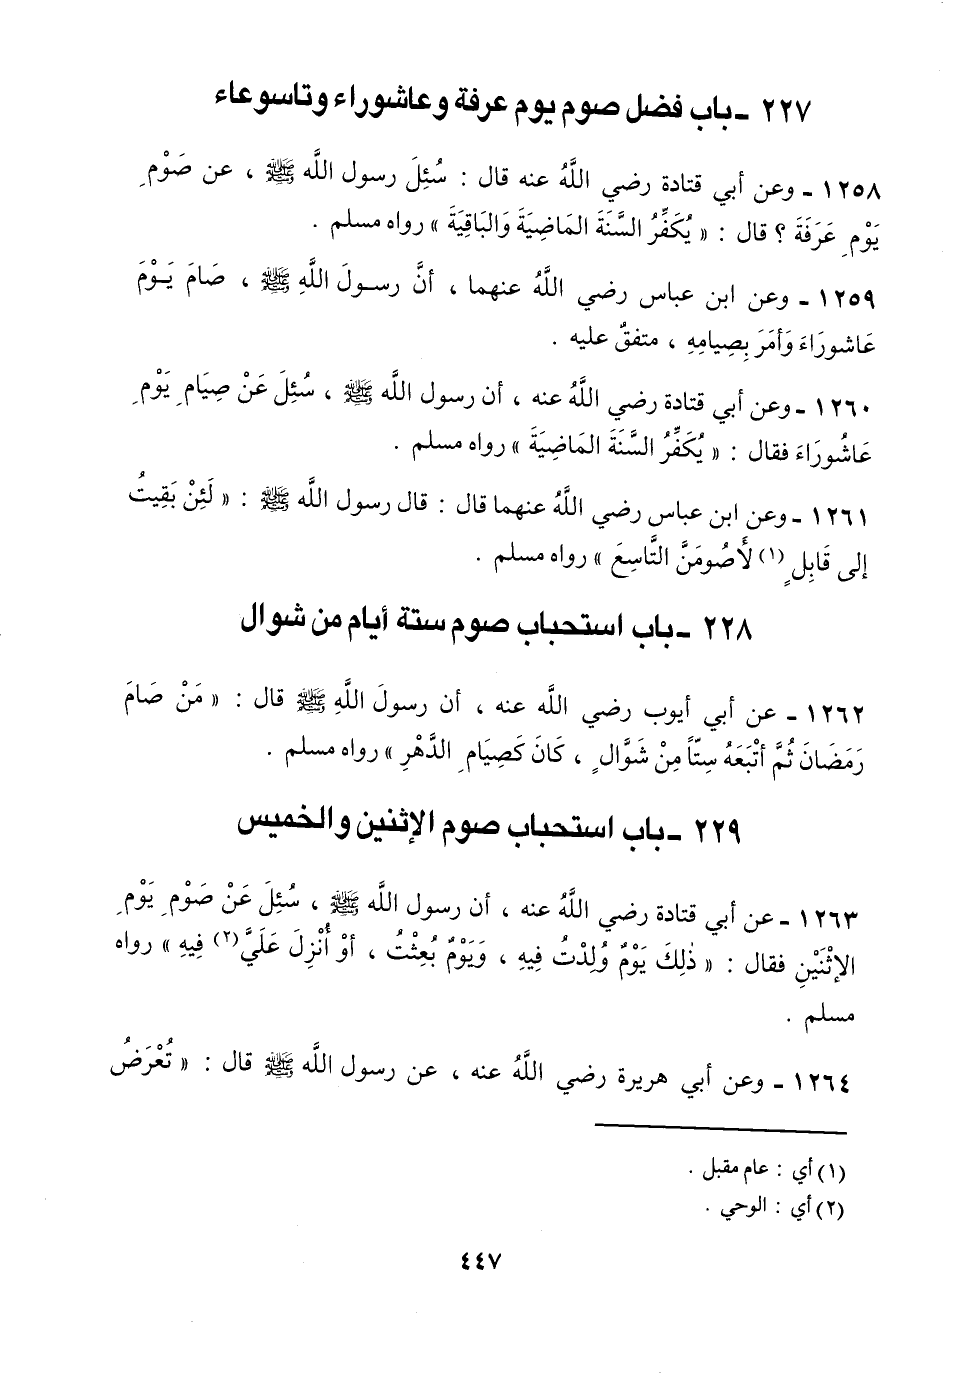 ٢٢٧ ـ باب فضل صوم يوم عرفة وعاشوراء وتاسوعاء
١٢٥٨ ـ وعن أبي قتادة رضي اللَّهُ عنه قال : سُئِلَ رسول اللَّه ﷺ ، عن صَوْمِ
يَوْمِ عَرَفَةَ ؟ قال : « يُكَفِّرُ السَّنَةَ المَاضِيَةَ وَالبَاقِيَةَ » رواه مسلم .
١٢٥٩ ـ وعن ابن عباس رضي اللَّهُ عنهما ، أنَّ رسولَ اللَّهِ ﷺ ، صَامَ يَوْمَ
عَاشورَاءَ وَأمَرَ بِصِيامِهِ ، متفقٌ عليه .
١٢٦٠ ـ وعن أبي قتادة رضي اللَّهُ عنه ، أن رسول اللَّه ﷺ ، سُئِلَ عَنْ صِيَامِ يَوْمِ
عَاشُورَاءَ فقال : « يُكَفِّرُ السَّنَةَ المَاضِيَةَ » رواه مسلم .
١٢٦١ ـ وعن ابن عباس رضي اللَّهُ عنهما قال : قال رسول اللَّه ﷺ : « لَئِنْ بَقِيتُ
إلى قَابِلٍ (١) لَأَصُومَنَّ التَّاسِعَ » رواه مسلم .
٢٢٨ ـ باب استحباب صوم ستة أيام من شوال
١٢٦٢ ـ عن أبي أيوب رضي اللَّه عنه ، أن رسولَ اللَّهِ ﷺ قال : « مَنْ صَامَ
رَمَضَانَ ثُمَّ أتْبَعَهُ سِتّاً مِنْ شَوَّالٍ ، كَانَ كَصِيَامِ الدَّهْرِ » رواه مسلم .
٢٢٩ ـ باب استحباب صوم الإثنين والخميس
١٢٦٣ ـ عن أبي قتادة رضي اللَّهُ عنه ، أن رسول اللَّه ﷺ ، سُئِلَ عَنْ صَوْمِ يَوْمِ
الإثْنَيْنِ فقال : « ذٰلِكَ يَوْمٌ وُلِدْتُ فِيهِ ، وَيَوْمٌ بُعِثْتُ ، أوْ أُنْزِلَ عَلَيَّ (٢) فِيهِ » رواه
مسلم .
١٢٦٤ ـ وعن أبي هريرة رضي اللَّهُ عنه ، عن رسول اللَّه ﷺ قال : « تُعْرَضُ
(١) أي : عام مقبل .
(٢) أي : الوحي .
٤٤٧